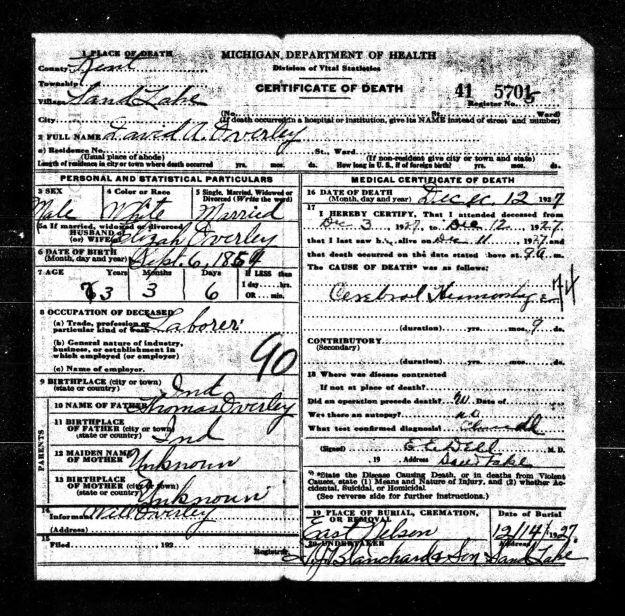 1 PLACE OF DEATH
MICHIGAN, DEPARTMENT OF HEALTH
County Kent
Division of Vital Statistics
Township
CERTIFICATE OF DEATH
41 5701
Village Sand Lake
Register No. 5
City (No. Ward)
(If death occurred in a hospital or institution, give its NAME instead of street and number)
2 FULL NAME David A. Overley
a) Residence No. St., Ward.
(Usual place of abode) (If non-resident give city or town and state)
Length of residence in city or town where death occurred yrs. mos. ds. How long in U. S., if of foreign birth? yrs. mos. ds.
PERSONAL AND STATISTICAL PARTICULARS
3 SEX 4 Color or Race 5 Single, Married, Widowed or Divorced (Write the word)
Male White Married
5a If married, widowed or divorced
HUSBAND of
(or) WIFE of Overley
6 DATE OF BIRTH
(Month, day and year) Sept. 6, 1854
7 AGE Years Months Days If LESS than
1 day hrs.
73 3 6 OR min.
8 OCCUPATION OF DECEASED
(a) Trade, profession or
particular kind of work Laborer
(b) General nature of industry,
business, or establishment in
which employed (or employer)
(c) Name of employer.
90
9 BIRTHPLACE (city or town)
(state or country) Ind
PARENTS
10 NAME OF FATHER Thomas Overley
11 BIRTHPLACE
OF FATHER (city or town)
(state or country) Ind
12 MAIDEN NAME
OF MOTHER Unknown
13 BIRTHPLACE
OF MOTHER (city or town)
(state or country) Unknown
14
Informant Will Overley
(Address)
15
Filed , 192 Registrar
MEDICAL CERTIFICATE OF DEATH
16 DATE OF DEATH
(Month, day and year) Dec. 12 1927
17
I HEREBY CERTIFY, That I attended deceased from
Dec 3 1927, to Dec 12, 1927
that I last saw h alive on Dec 11 1927 and
that death occurred on the date stated above at 9 a. m.
The CAUSE OF DEATH* was as follows:
Cerebral
74
(duration) yrs. mos. 9 ds.
CONTRIBUTORY
(Secondary)
(duration) yrs. mos. ds.
18 Where was disease contracted
If not at place of death?
Did an operation precede death? Date of
Was there an autopsy? no
What test confirmed diagnosis?
(Signed) Dell M. D.
, 19 Address Sand Lake
*State the Disease Causing Death, or in deaths from Violent
Causes, state (1) Means and Nature of Injury, and (2) whether Accidental, Suicidal, or Homicidal.
(See reverse side for further instructions.)
19 PLACE OF BURIAL, CREMATION, OR REMOVAL Date of Burial
East Nelson 12/14 1927
20 UNDERTAKER Address
Blanchard & Son Sand Lake